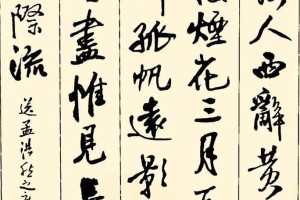 人西辭黄
煙花三月下
孤帆遠影
盡惟見長
際流
送孟浩然之